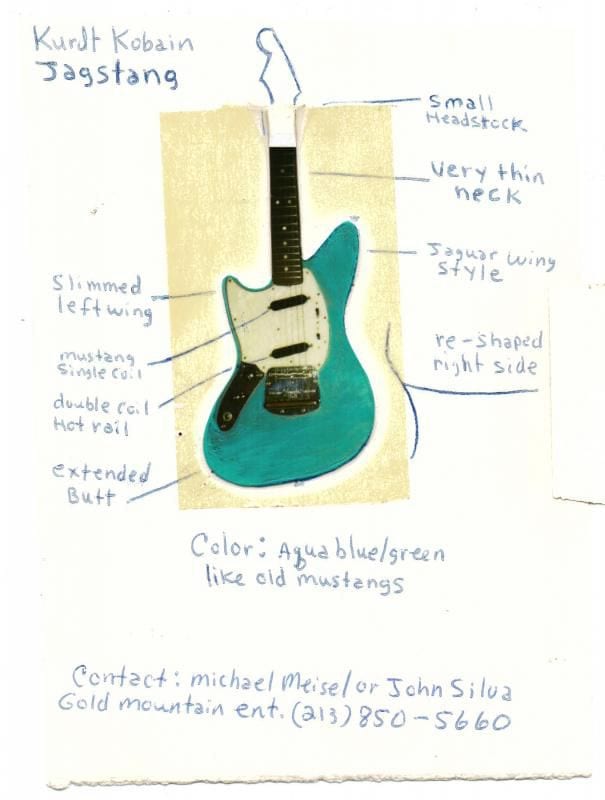 Kurdt Kobain
Jagstang
Small
Headstock
Very thin
neck
Jaguar wing
Style
Slimmed
left wing
mustang
Single coil
re-shaped
right side
double coil
Hot rail
extended
Butt
Color: Aqua blue/green
like old mustangs
Contact: michael Meisel or John Silva
Gold mountain ent. (213) 850-5660